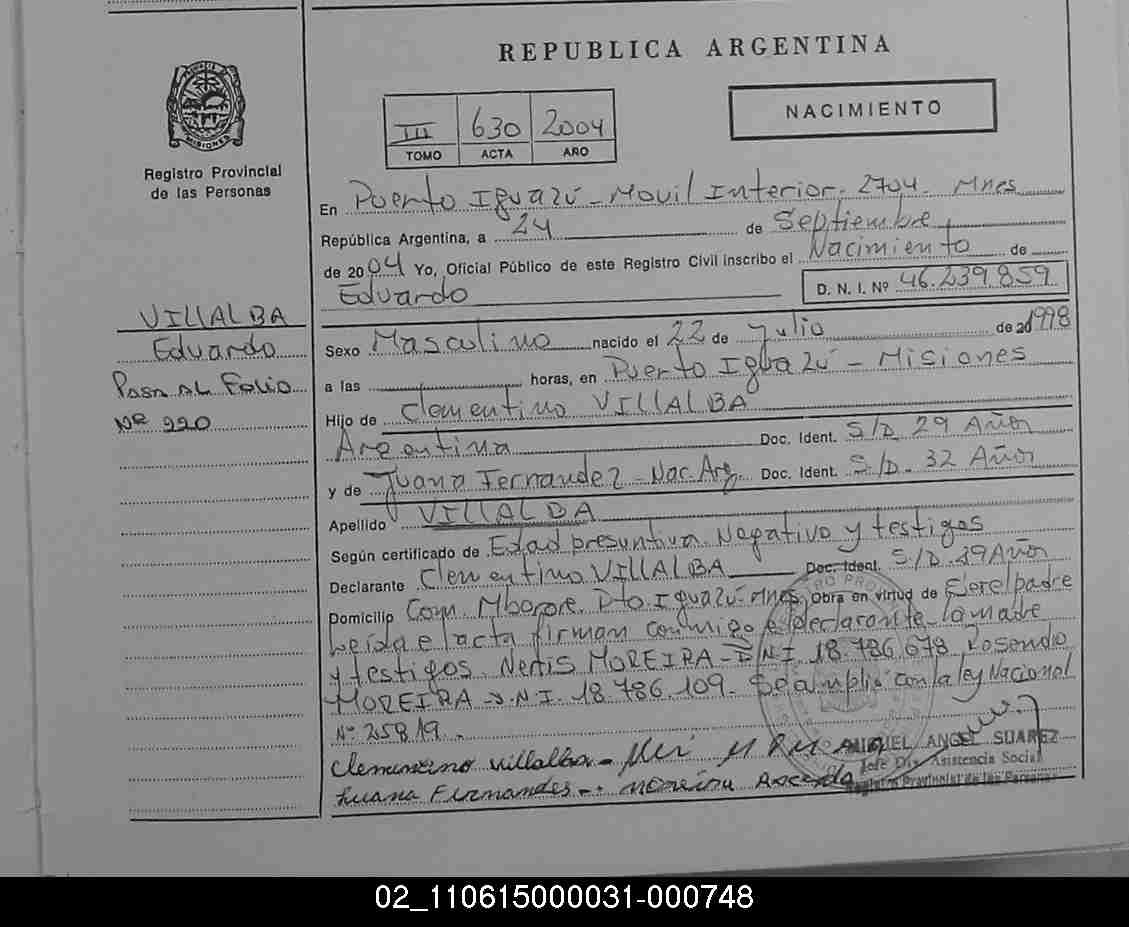 REPUBLICA ARGENTINA
PROVINCIA DE MISIONES
Registro Provincial
de las Personas
III 630 2004
TOMO ACTA AÑO
NACIMIENTO
En Puerto Iguazú - Movil Interior. 2704. Mnes
República Argentina, a 24 de Septiembre
de 2004 Yo, Oficial Público de este Registro Civil inscribo el Nacimiento de
Eduardo D. N. I. Nº 46.239.859
VILLALBA
Eduardo
Pasa al Folio
Nº 220
Sexo Masculino nacido el 22 de Julio de 1998
a las horas, en Puerto Iguazú - Misiones
Hijo de Clementino VILLALBA
Argentina Doc. Ident. S/D 29 Años
y de Juana Fernandez - Nac. Arg. Doc. Ident. S/D. 32 Años
Apellido VILLALBA
Según certificado de Edad presuntiva Negativo y testigos
Declarante Clementino VILLALBA Doc. Ident. S/D. 29 Años
Domicilio Com. Mborore. Dto Iguazú - Mnes. Obra en virtud de Ser el padre
Leída el acta firman conmigo el declarante la madre
y testigos. Neris MOREIRA - D.N.I. 18.786.678 Rosendo
MOREIRA D.N.I. 18.786.109. Se cumplió con la ley Nacional
Nº 25819.
Clemintino villalba -
MIGUEL ANGEL SUAREZ
Jefe Dto Asistencia Social
Registro Provincial de las Personas
Juana Fernandes - moreira
02_110615000031-000748